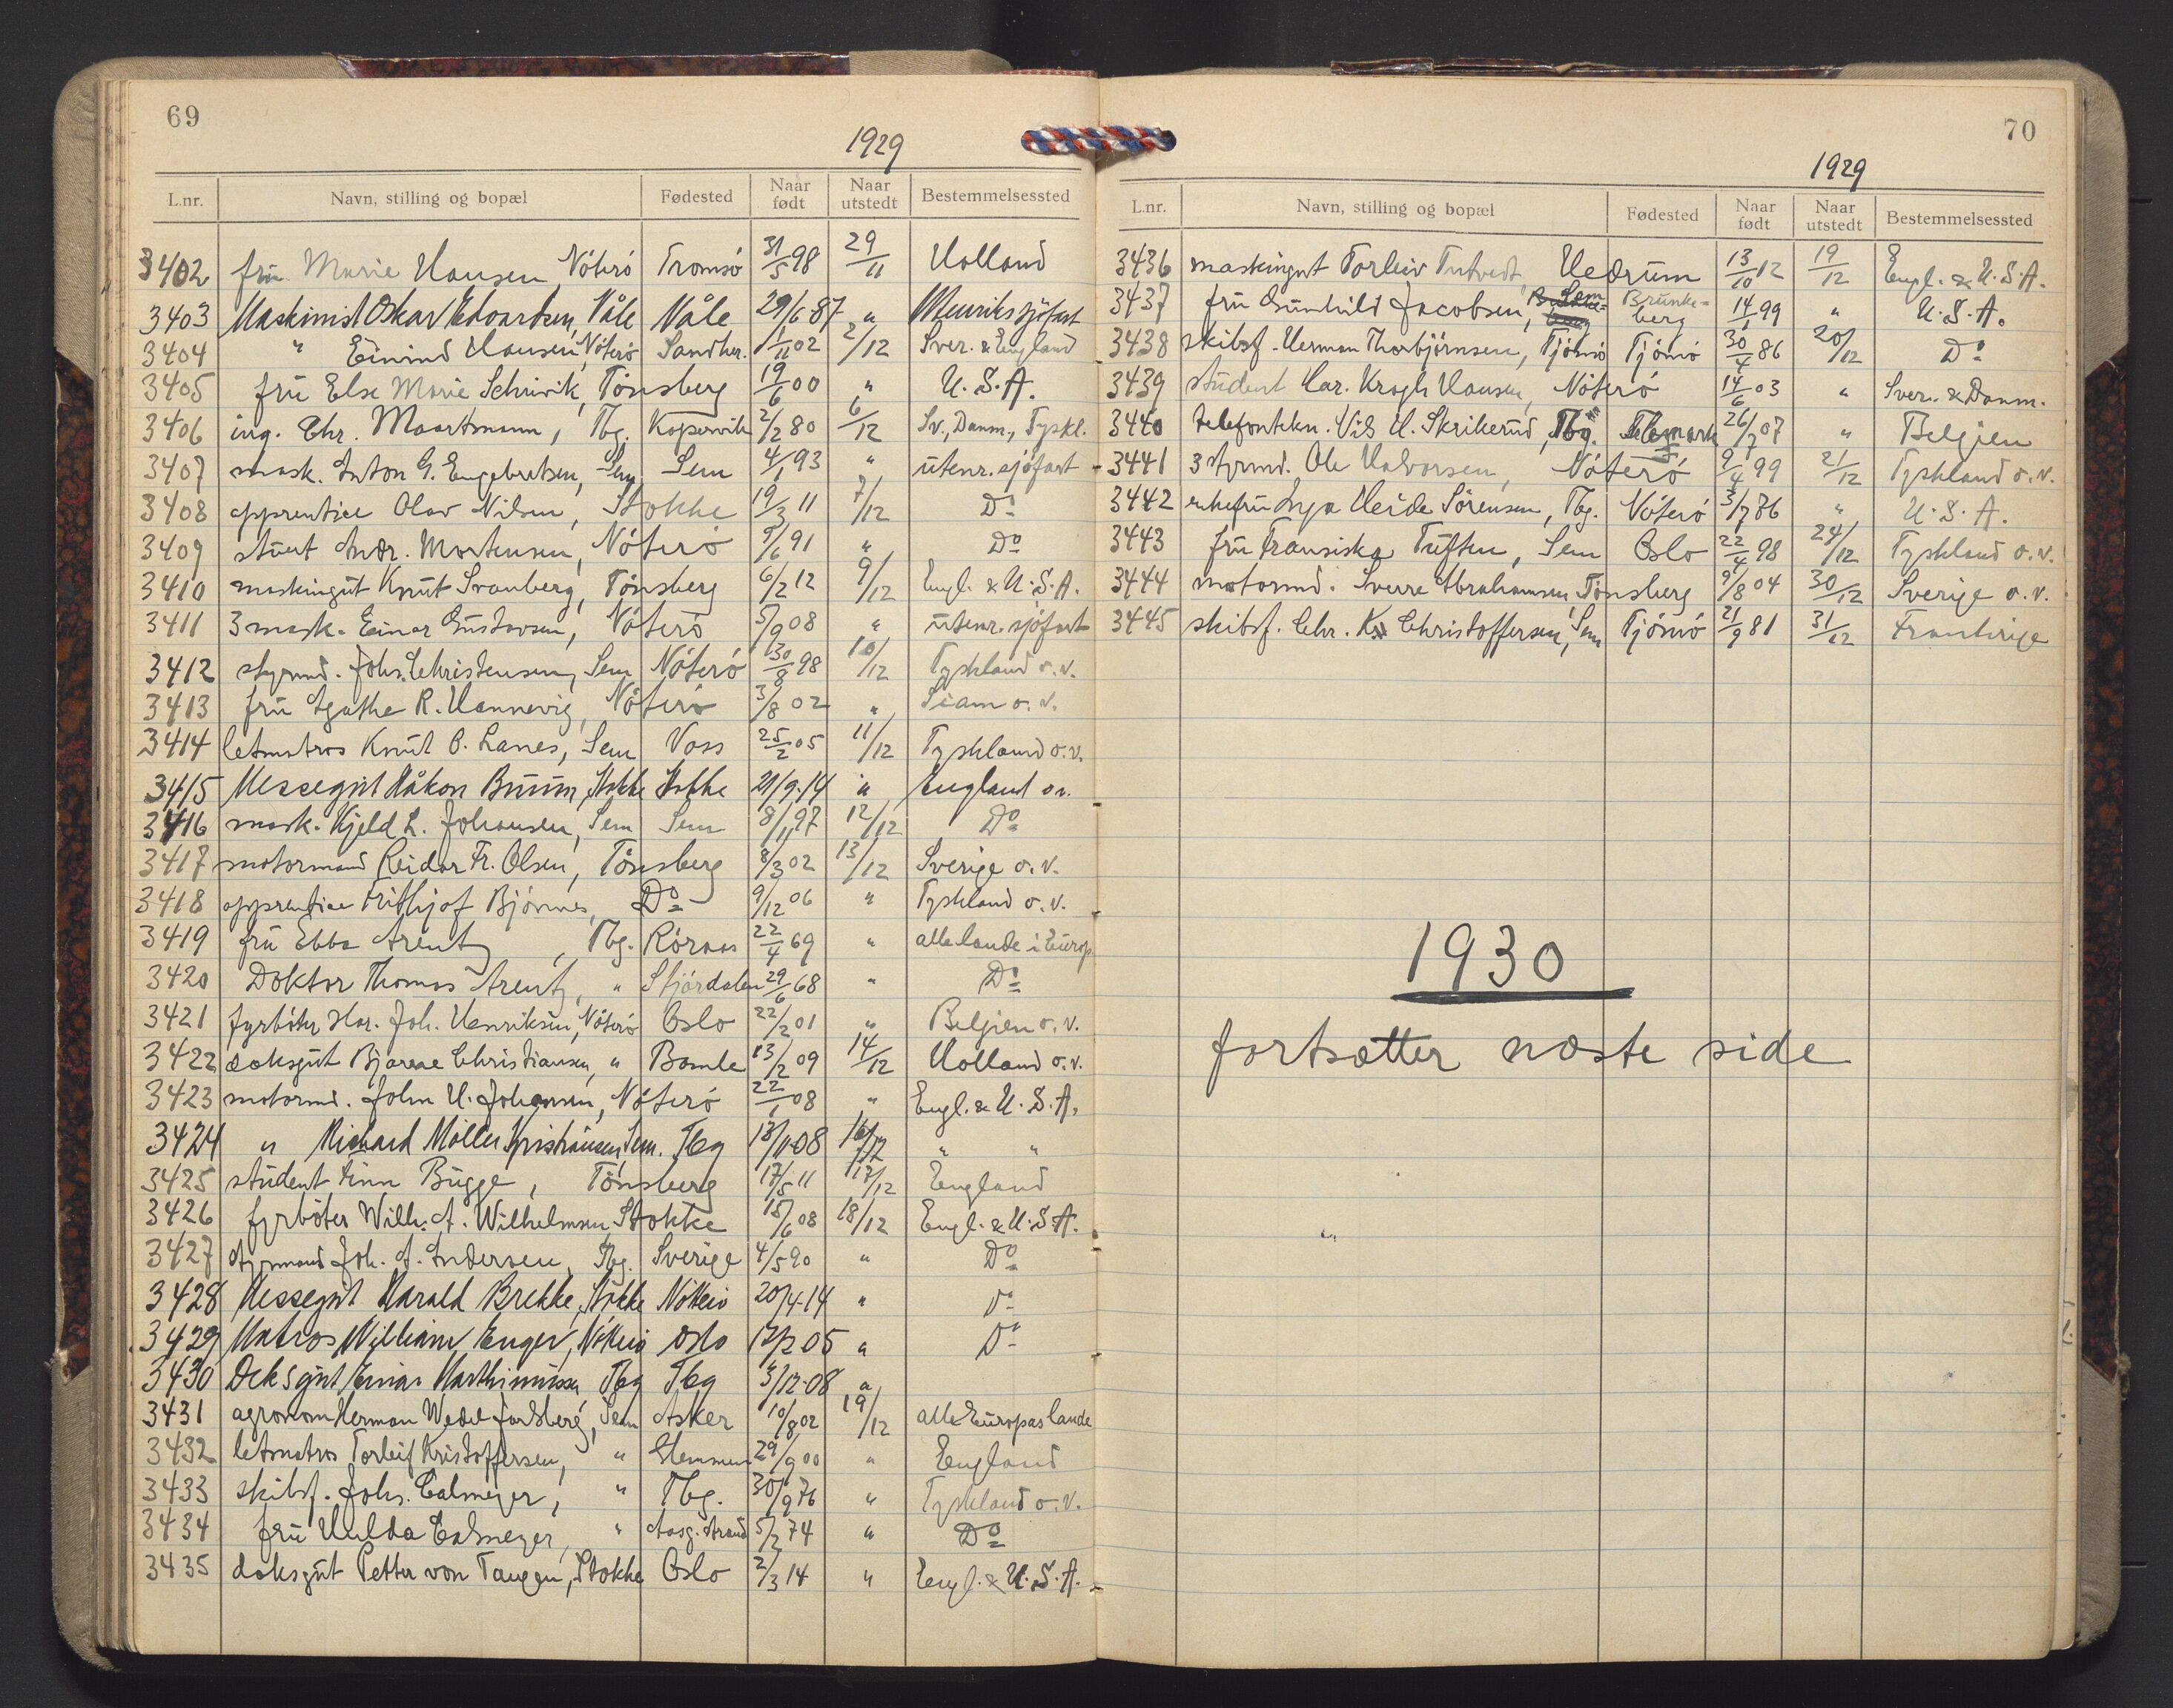 69
1929
L.nr. Navn, stilling og bopæl Fødested Naar født Naar utstedt Bestemmelsessted
3402 frü Marie Hansen, Nöterö Tromsö 31/5 98 29/11 Holland
3403 Maskinist Oskar Edvardsen, Våle Våle 29/6 87 " Utenriks sjöfart
3404 " Einind Hansen, Nöterö Sandher. 1/11 02 2/12 Sver. & England
3405 frü Else Marie Schrivik, Tönsberg 19/6 00 " U.S.A.
3406 ing. Chr. Maartmann, Tbg. Kopervik 2/2 80 6/12 Sv., Danm., Tyskl.
3407 mask. Anton G. Engebretsen, Sem Sem 4/1 93 " utenr. sjöfart
3408 apprentice Olav Nilsen, Stokke 19/3 11 7/12 Do
3409 stuert Andr. Mortensen, Nöterö 9/6 91 " Do
3410 maskingüt Knut Svanberg, Tönsberg 6/2 12 9/12 Engl. & U.S.A.
3411 3 mask. Einar Gustavsen, Nöterö 5/9 08 " ütenr. sjöfart
3412 styrmd. Johs. Christensen, Sem Nöterö 30/8 98 10/12 Tyskland o.v.
3413 frü Agathe R. Hannevig, Nöterö 3/8 02 " Siam o.v.
3414 letmatros Knut O. Lanes, Sem Voss 25/2 05 11/12 Tyskland o.v.
3415 Messegüt Håkon Bruun, Stokke Stokke 21/9-14 " England o.v.
3416 mask. Kjeld L. Johansen, Sem Sem 8/11 97 12/12 Do
3417 motormand Reidar Fr. Olsen, Tönsberg 8/3 02 13/12 Sverige o.v.
3418 apprentice Frithjof Björnnes, Do 9/12 06 " Tyskland o.v.
3419 frü Ebba Arentz, Tbg. Röraas 22/4 69 " alle lande i Europ.
3420 Doktor Thomas Arentz, " Stjördalen 29/6 68 " Do
3421 fyrböter Har. Joh. Henriksen, Nöterö Oslo 22/2 01 " Belgien o.v.
3422 doksgüt Bjarne Christiansen, " Bamle 13/2 09 14/12 Holland o.v.
3423 motormd. John H. Johansen, Nöterö 22/1 08 " Engl. & U.S.A.
3424 " Richard Möller Kristiansen, Sem. Tbg 13/11-08 16/12 " "
3425 stüdent Finn Bügge, Tönsberg 17/5 11 17/12 England
3426 fyrböter Wilh. A. Wilhelmsen, Stokke 15/6 08 18/12 Engl. & U.S.A.
3427 styrmand Joh. A. Andersen, Tbg. Sverige 4/5 90 " Do
3428 Messegüt Harald Brekke, Stokke Nöterö 20/4-14 " Do
3429 Matros William Enger, Nöterö Oslo 17/2 05 " Do
3430 Deksgüt Einar Marthinüssen, Tbg Tbg 3/12-08 "
3431 agronom Herman Wedel Jarlsberg, Sem Asker 10/8 02 19/12 alle Europas lande
3432 letmatros Torleif Kristoffersen, " Glemmen 29/9 00 " England
3433 skibsf. Johs. Calmeyer, " Tbg. 30/9 76 " Tyskland o.v.
3434 frü Hulda Calmeyer, " Aasg. strand 5/2 74 " Do
3435 doksgüt Petter von Tangen, Stokke Oslo 2/3 14 " Engl. & U.S.A.
70
1929
L.nr. Navn, stilling og bopæl Fødested Naar født Naar utstedt Bestemmelsessted
3436 maskingut Torleiv Tutvedt, Hedrum 13/10 12 19/12 Engl. & U.S.A.
3437 frü Günhild Jacobsen, Sem Brunkeberg 14/1 99 " U.S.A.
3438 skibsf. Herman Thorbjörnsen, Tjömö Tjömö 30/4 86 20/12 Do
3439 stüdent Car. Krogh Hansen, Nöterö 14/6 03 " Sver. & Danm.
3440 telefontekn. Nils H. Skrikerud, Tbg. Telemark 26/7 07 " Belgien
3441 3 styrmd. Ole Halvorsen, Nöterö 9/4 99 21/12 Tyskland o.v.
3442 enkefrü Inga Heide Sörensen, Tbg. Nöterö 3/7 86 " U.S.A.
3443 frü Fransiska Tuften, Sem Oslo 22/4 98 24/12 Tyskland o.v.
3444 motormd. Sverre Abrahamsen, Tönsberg 9/8 04 30/12 Sverige o.v.
3445 skibsf. Chr. Kr. Christoffersen, Sem Tjömö 21/9 81 31/12 Frankrige
1930
fortsætter næste side